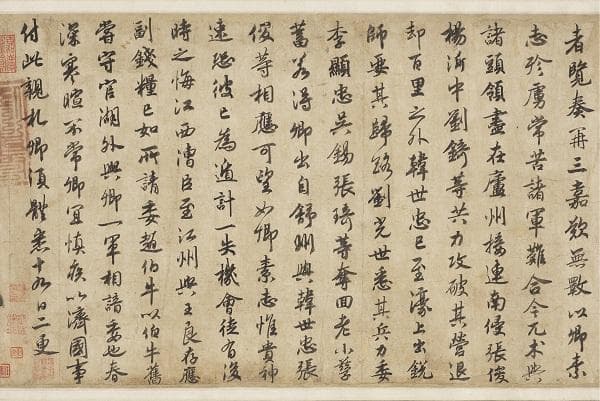 者覽奏再三嘉歎無斁以卿素
志殄虜常苦諸軍難合今兀术與
諸頭領盡在廬州接連南侵張俊
楊沂中劉錡等共力攻破其營退
却百里之外韓世忠已至濠上出銳
師要其歸路劉光世悉其兵力委
李顯忠吳錫張琦等奪回老小孳
畜若得卿出自舒州與韓世忠張
俊等相應可望如卿素志惟貴神
速恐彼已為遁計一失機會徒有後
時之悔江西漕臣至江州與王良存應
副錢糧已如所請委趙伯牛以伯牛舊
嘗守官湖外與卿一軍相諳委也春
深寒暄不常卿宜慎疾以濟國事
付此親札卿須體悉十九日二更